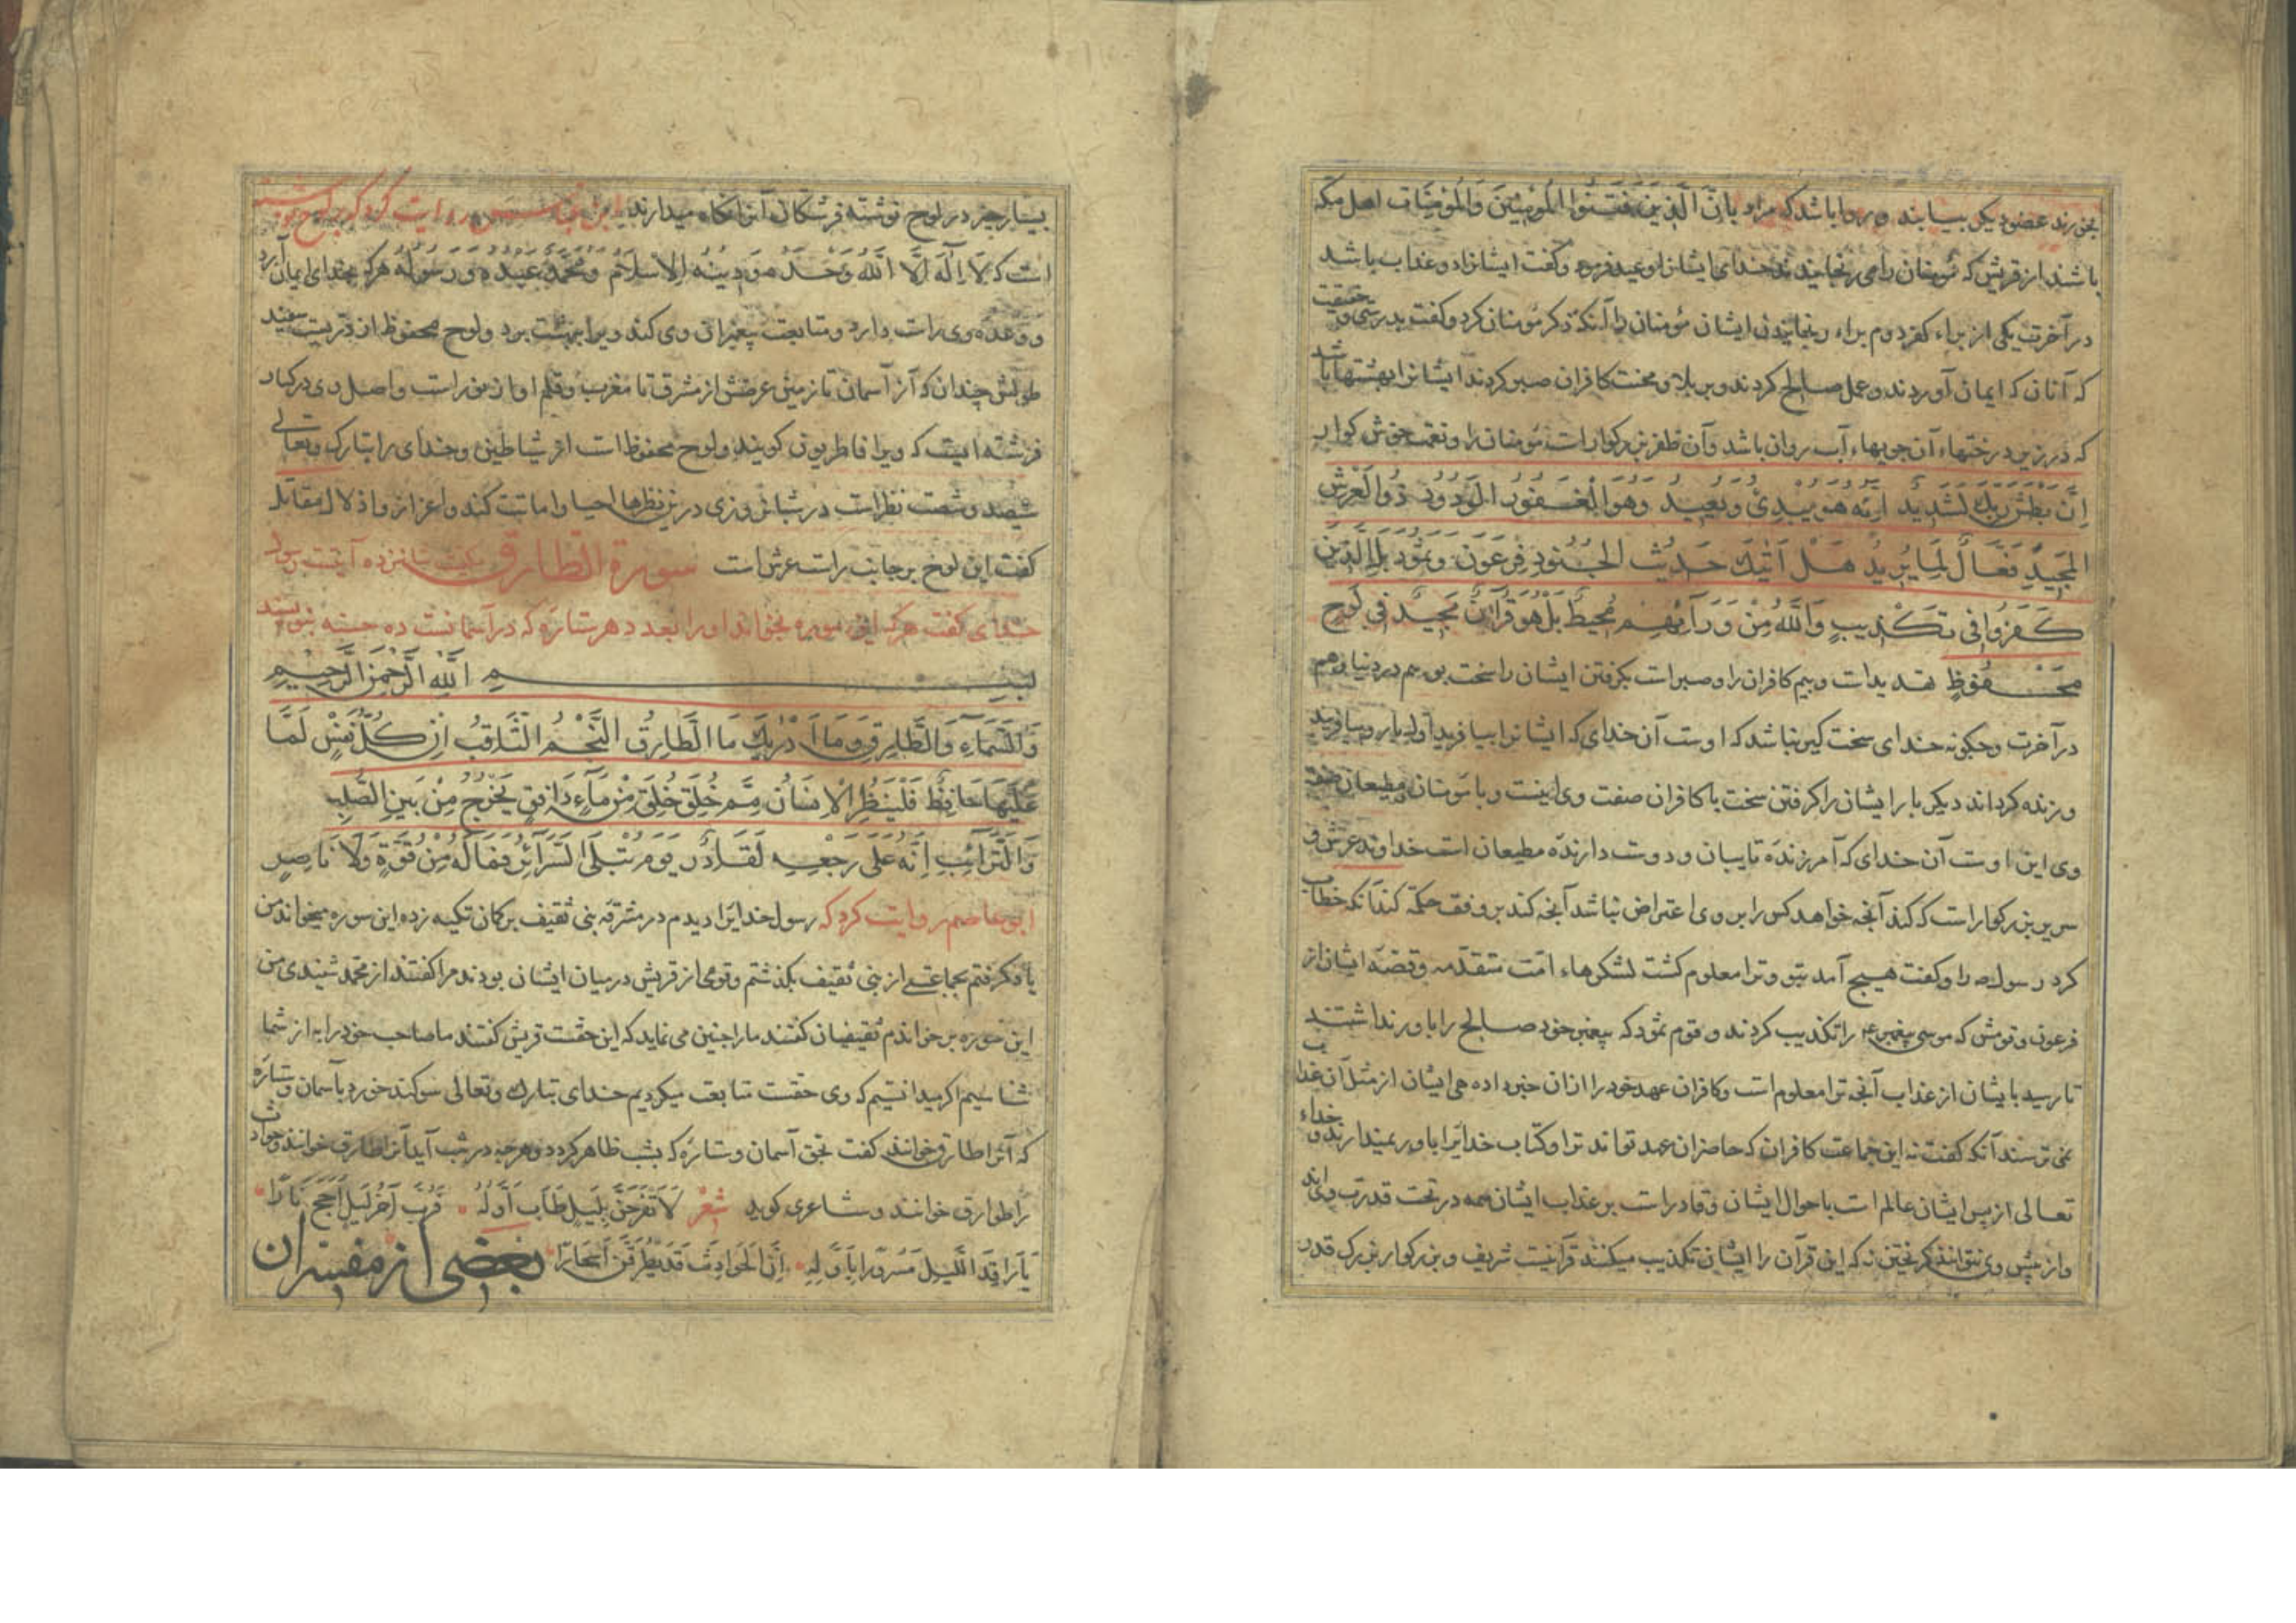 بخورند عضو دیکر بیسابند و روا باشد که مراد بانّ الَّذِینَ فَتَنُوا الْمُؤْمِنِینَ وَالْمُؤْمِنَات اهل مکّه
باشند از قریش که مؤمنان را می رنجانیدند خدای ایشانرا وعید فرمود و کفت ایشانراد و عذاب باشد
در آخرت یکی از براء کفر دوم براء رنجانیدن ایشان مؤمنان را آنکه ذکر مؤمنان کرد و کفت بدرستی و حقیقت
که آنان که ایمان آوردند و عمل صالح کردند و بر بلا و محنت کافران صبر کردند ایشانرا بهشتها باشد
که در زیر درختهاء آن جویهاء آب روان باشد وآن ظفر بزرکوارات مؤمنان را و نعمت خوش کوار
اِنَّ بَطْشَ رَبِّكَ لَشَدِیدٌ اِنَّهُ هُوَ یُبْدِئُ وَیُعِیدُ وَهُوَ الْغَفُورُ الْوَدُودُ ذُو الْعَرْشِ
الْمَجِیدِ فَعَّالٌ لِمَا یُرِیدُ هَلْ اَتٰیكَ حَدِیثُ الْجُنُودِ فِرْعَوْنَ وَثَمُودَ بَلِ الَّذِینَ
كَفَرُوا فِی تَكْذِیبٍ وَاللَّهُ مِنْ وَرَآئِهِمْ مُحِیطٌ بَلْ هُوَ قُرْآنٌ مَجِیدٌ فِی لَوْحٍ
مَحْفُوظٍ تهدیدات و بیم کافران را و صبرات بکرفتن ایشان را سخت بود هم در دنیا و هم
در آخرت و چکونه خدای سخت کیر نباشد که اوست آن خدای که ایشانرا بیافرید اول بار و بیافریند
و زنده کرداند دیکر بار ایشان را کرفتن سخت با کافران صفت وی اینست و با مؤمنان و مطیعان صفت
وی این اوست آن خدای که آمرزنده تایبان و دوست دارنده مطیعان است خداوند عرش و
سریر بزرکوارات که کند آنچه خواهد کس را بر وی اعتراض نباشد آنچه کند بر وفق حکمة کند آنکه خطاب
کرد رسول ص را و کفت هیچ آمد بتو و ترا معلوم کشت لشکرهاء امّت متقدّمه و قصّه ایشان از
فرعون و قومش که موسی پیغمبر ع را تکذیب کردند و قوم ثمود که پیغمبر خود صالح را باور نداشتند
تا رسید بایشان از عذاب آنچه ترا معلوم است و کافران عهد خود را از ان خبر داده می ایشان از مثل آن عذاب
نمی ترسند آنکه کفت نه این جماعت کافران که حاضران عهد تواند ترا و کتاب خدایرا باور نمیدارند و خداء
تعالی از پس ایشان عالم است باحوال ایشان و قادراست بر عذاب ایشان همه در تحت قدرت وی اند
و از پیش وی نتوانند کریختن نه که این قرآن را ایشان تکذیب میکنند قرآنیست شریف و بزرکوار بزرک قدر
بسیار چیز در لوح نوشته فرشتکان آنرا نکاه میدارند ابن عباس روایت کرد که بر لوح نوشته
است که لَا اِلٰهَ اِلَّا اللَّهُ وَحْدَهُ وَ دِینُهُ الْاِسْلَامُ وَمُحَمَّدٌ عَبْدُهُ وَرَسُولُهُ هر که بخدای ایمان آرد
و وعده وی راست دارد و متابعت پیغمبران وی کند ویرا ببهشت برد و لوح محفوظ از درّیست سفید
طولش چندان که از آسمان تا زمین عرضش از مشرق تا مغرب و قلم او از نوراست و اصل وی در کنار
فرشته ایست که ویرا فاطریون کویند و لوح محفوظ است از شیاطین و خدای را تبارک و تعالی
سیصد و شصت نظرات در شبانروزی درین نظرها احیا و اماتت کند و اعزاز و اذلال مقاتل
کفت این لوح بر جانب راست عرش است سورة الطّارق مکیست شانزده آیتست رسول
خدای کفت هر که این سوره بخواند او را بعدد هر ستاره که در آسمانست ده حسنه بنویسند
بِسْمِ اللَّهِ الرَّحْمٰنِ الرَّحِیمِ
وَالسَّمَآءِ وَالطَّارِقِ وَمَا اَدْرٰیكَ مَا الطَّارِقُ النَّجْمُ الثَّاقِبُ اِنْ كُلُّ نَفْسٍ لَمَّا
عَلَیْهَا حَافِظٌ فَلْیَنْظُرِ الْاِنْسَانُ مِمَّ خُلِقَ خُلِقَ مِنْ مَآءٍ دَافِقٍ یَخْرُجُ مِنْ بَیْنِ الصُّلْبِ
وَالتَّرَآئِبِ اِنَّهُ عَلٰی رَجْعِهِ لَقَادِرٌ یَوْمَ تُبْلَی السَّرَآئِرُ فَمَا لَهُ مِنْ قُوَّةٍ وَلَا نَاصِرٍ
ابو عاصم روایت کرد که رسول خدایرا دیدم در مشرقه بنی ثقیف بر کمان تکیه زده این سوره میخواند من
یاد کرفتم بجماعتی از بنی ثقیف بکذشتم و قومی از قریش در میان ایشان بودند مرا کفتند از محمد شنیدی من
این سوره بر خواندم ثقیفیان کفتند ما را چنین می نماید که این حقست قریش کفتند ما صاحب خود را به از شما
شناسیم اکر میدانستیم که وی حقست متابعت میکردیم خدای تبارک وتعالی سوکند خورد بآسمان و ستاره
که آنرا طارق خوانند کفت بحق آسمان و ستاره که بشب ظاهر کردد و هر چه در شب آید آنرا طارق خوانند و حوادث
را طوارق خوانند و شاعری کوید شعر لَا تَفْرَحَنَّ بِلَیْلٍ طَابَ اَوَّلُهُ فَرُبَّ آخِرِ لَیْلٍ اَجَّجَ نَارًا
یَا رَاقِدَ اللَّیْلِ مَسْرُورًا بِاَوَّلِهِ اِنَّ الْحَوَادِثَ قَدْ یَطْرُقْنَ اَسْحَارًا بعضی از مفسّران